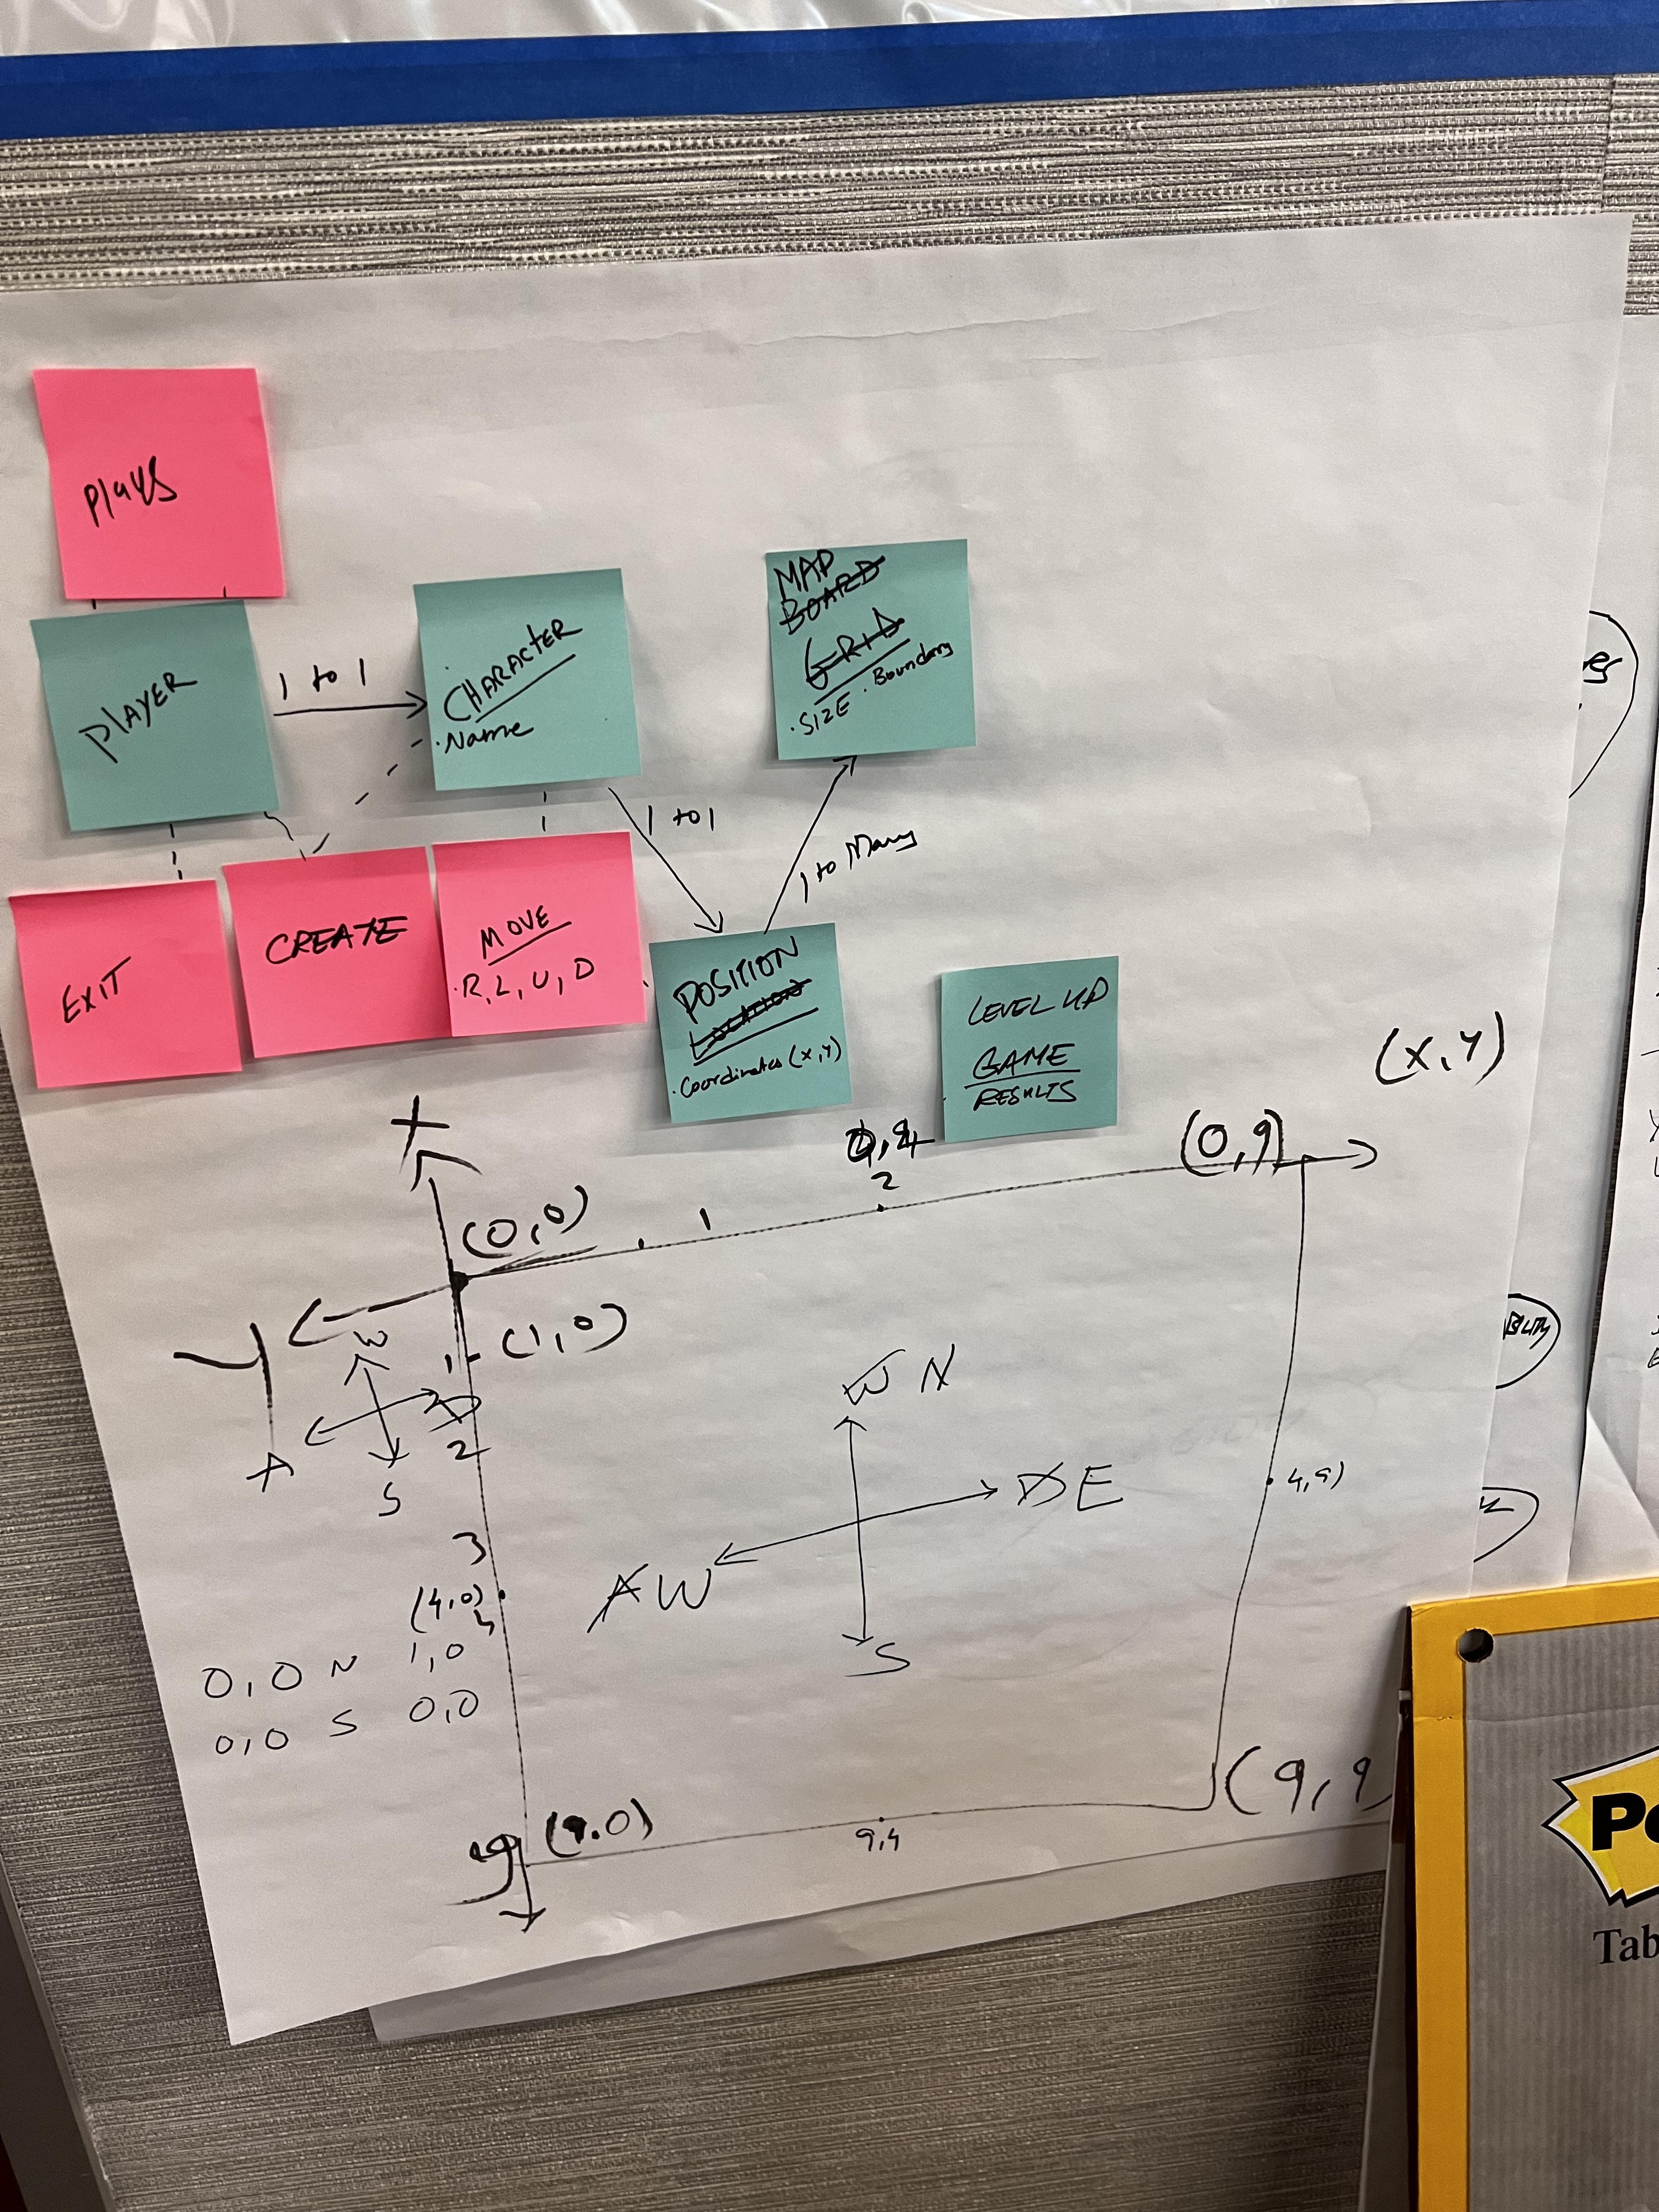 Plays
PLAYER
1 to 1
CHARACTER
· Name
MAP
BOARD
GRID
· SIZE · Boundary
1 to 1
1 to Many
EXIT
CREATE
MOVE
· R, L, U, D
POSITION
Location
· Coordinates (x, y)
LEVEL UP
GAME
RESULTS
(X, Y)
X
(0,0)
1
2
(0,9)
Y
1
(1,0)
W
A
D
S
2
W N
D E
A W
S
4,9)
3
(4,0)
4
0,0 N 1,0
0,0 S 0,0
9
(9.0)
9,4
(9,9
Po
Tab